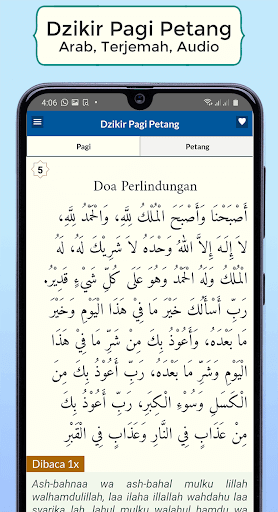 Dzikir Pagi Petang
Arab, Terjemah, Audio
4:06
Dzikir Pagi Petang
Pagi
Petang
5
Doa Perlindungan
أَصْبَحْنَا وَأَصْبَحَ الْمُلْكُ لِلَّهِ، وَالْحَمْدُ لِلَّهِ،
لَا إِلَـهَ إِلاَّ اللهُ وَحْدَهُ لَا شَرِيْكَ لَهُ، لَهُ
الْمُلْكُ وَلَهُ الْحَمْدُ وَهُوَ عَلَى كُلِّ شَيْءٍ قَدِيْرُ.
رَبِّ أَسْأَلُكَ خَيْرَ مَا فِيْ هَذَا الْيَوْمِ وَخَيْرَ
مَا بَعْدَهُ، وَأَعُوْذُ بِكَ مِنْ شَرِّ مَا فِيْ هَذَا
الْيَوْمِ وَشَرِّ مَا بَعْدَهُ، رَبِّ أَعُوْذُ بِكَ مِنَ
الْكَسَلِ وَسُوْءِ الْكِبَرِ، رَبِّ أَعُوْذُ بِكَ
مِنْ عَذَابٍ فِي النَّارِ وَعَذَابٍ فِي الْقَبْرِ
Dibaca 1x
Ash-bahnaa wa ash-bahal mulku lillah
walhamdulillah, laa ilaha illallah wahdahu laa
syarika lah, lahul mulku walahul hamdu wa